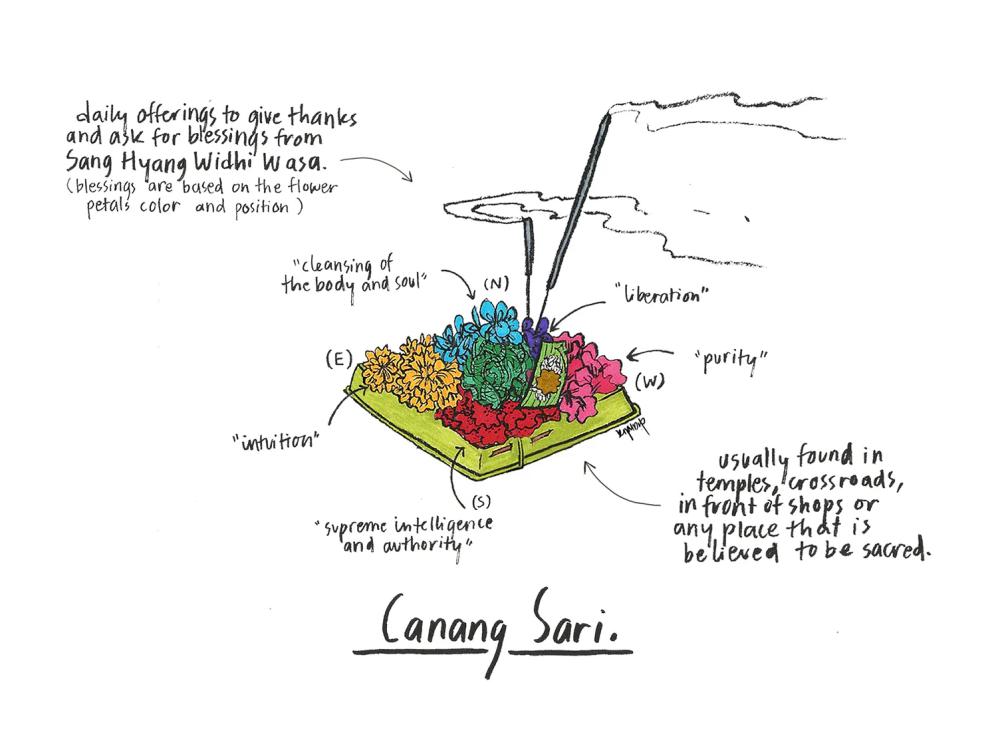 daily offerings to give thanks
and ask for blessings from
Sang Hyang Widhi Wasa.
(blessings are based on the flower
petals color and position)
"cleansing of
the body and soul"
(N)
"liberation"
(E)
"purity"
(W)
"intuition"
(S)
"supreme intelligence
and authority"
usually found in
temples, crossroads,
in front of shops or
any place that is
believed to be sacred.
Canang Sari.